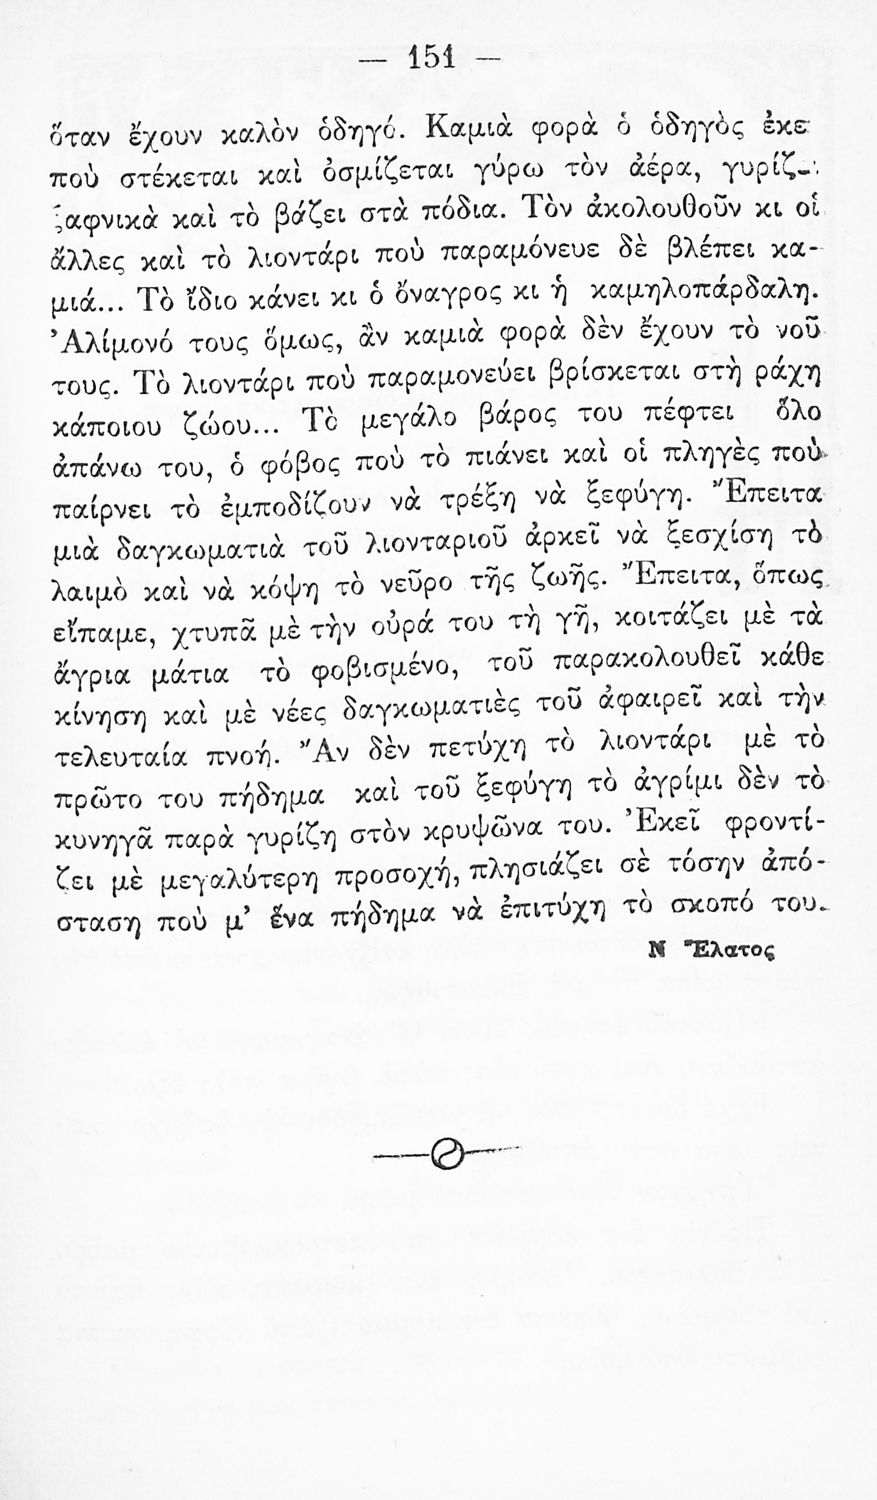 — 151 —
ὅταν ἔχουν καλὸν ὁδηγό. Καμιὰ φορὰ ὁ ὁδηγὸς ἐκε
ποὺ στέκεται καὶ ὀσμίζεται γύρω τὸν ἀέρα, γυρίζ
ξαφνικὰ καὶ τὸ βάζει στὰ πόδια. Τὸν ἀκολουθοῦν κι οἱ
ἄλλες καὶ τὸ λιοντάρι ποὺ παραμόνευε δὲ βλέπει κα-
μιά... Τὸ ἴδιο κάνει κι ὁ ὄναγρος κι ἡ καμηλοπάρδαλη.
Ἀλίμονό τους ὅμως, ἂν καμιὰ φορὰ δὲν ἔχουν τὸ νοῦ
τους. Τὸ λιοντάρι ποὺ παραμονεύει βρίσκεται στὴ ράχη
κάποιου ζώου... Τὸ μεγάλο βάρος του πέφτει ὅλο
ἀπάνω του, ὁ φόβος ποὺ τὸ πιάνει καὶ οἱ πληγὲς ποὺ
παίρνει τὸ ἐμποδίζουν νὰ τρέξη νὰ ξεφύγη. Ἔπειτα
μιὰ δαγκωματιὰ τοῦ λιονταριοῦ ἀρκεῖ νὰ ξεσχίση τὸ
λαιμὸ καὶ νὰ κόψη τὸ νεῦρο τῆς ζωῆς. Ἔπειτα, ὅπως
εἴπαμε, χτυπᾶ μὲ τὴν οὐρά του τὴ γῆ, κοιτάζει μὲ τὰ
ἄγρια μάτια τὸ φοβισμένο, τοῦ παρακολουθεῖ κάθε
κίνηση καὶ μὲ νέες δαγκωματιὲς τοῦ ἀφαιρεῖ καὶ τὴν
τελευταία πνοή. Ἂν δὲν πετύχη τὸ λιοντάρι μὲ τὸ
πρῶτο του πήδημα καὶ τοῦ ξεφύγη τὸ ἀγρίμι δὲν τὸ
κυνηγᾶ παρὰ γυρίζη στὸν κρυψῶνα του. Ἐκεῖ φροντί-
ζει μὲ μεγαλύτερη προσοχή, πλησιάζει σὲ τόσην ἀπό-
σταση ποὺ μ' ἕνα πήδημα νὰ ἐπιτύχη τὸ σκοπό του.
Ν Ἔλατος